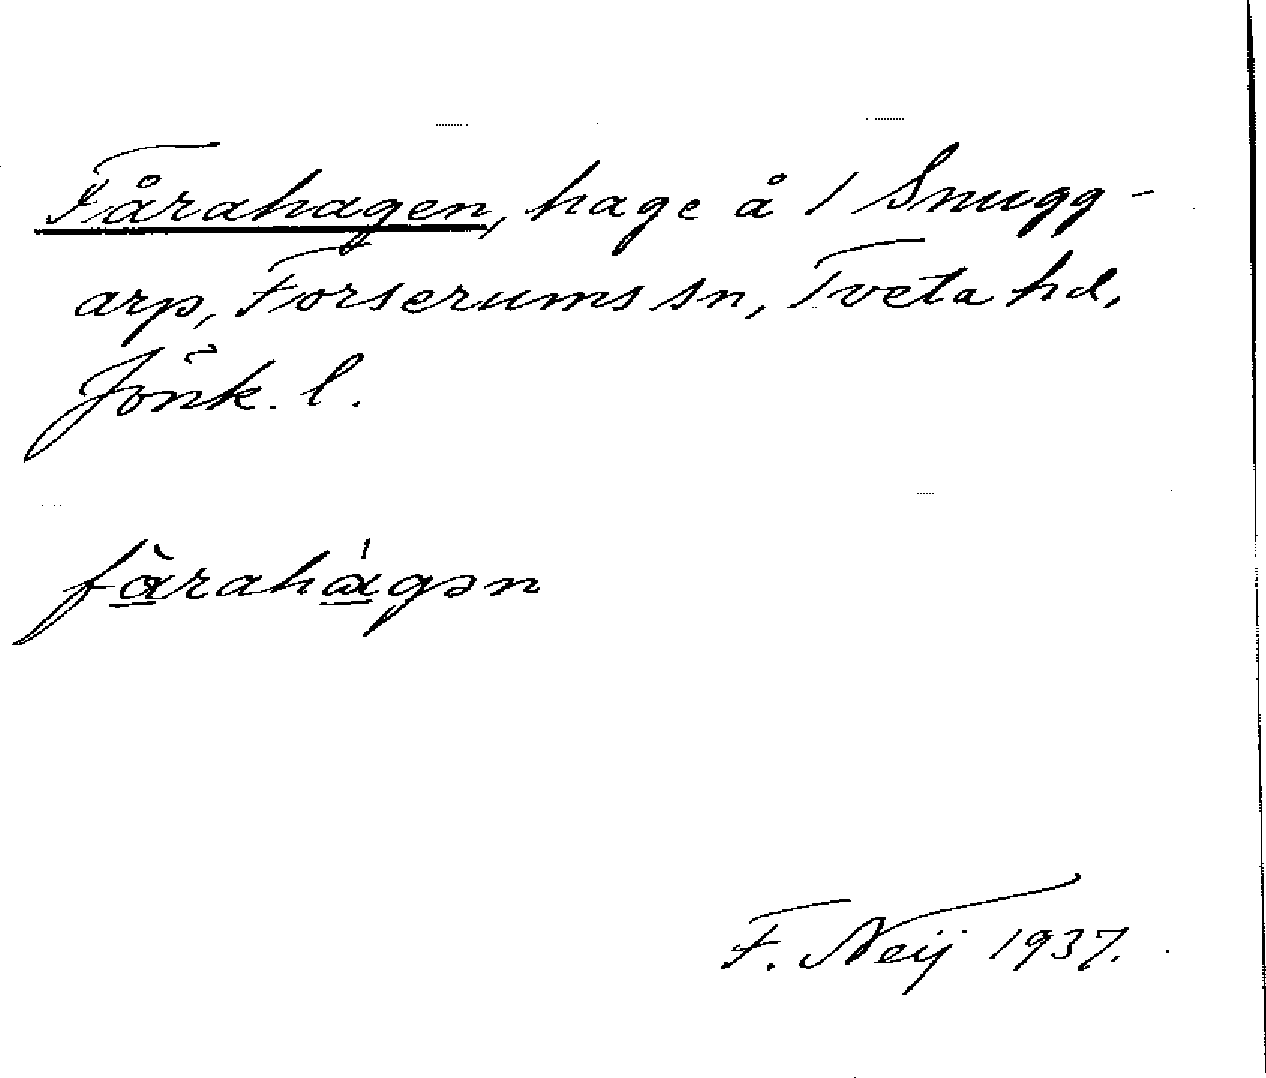 Fårahagen, hage å 1 Snugg-
arp, Forserums sn, Tveta hd,
Jönk. l.
fàrahágən
F. Neij 1937.